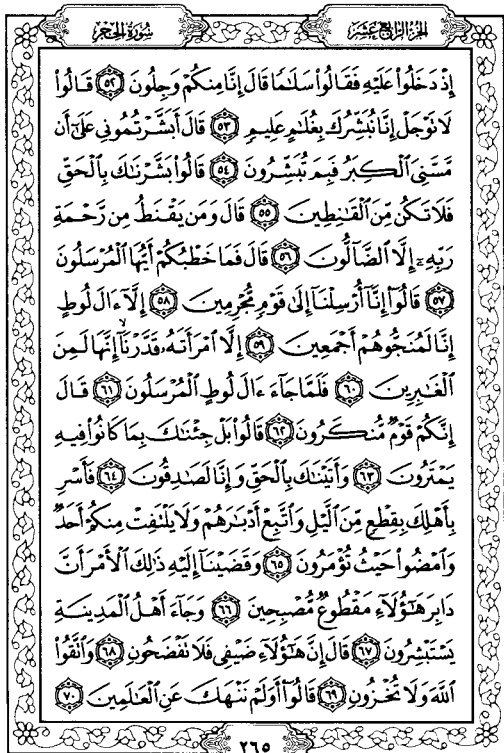 سُورَةُ الحِجْر
الجُزْءُ الرَّابِعَ عَشَرَ
إِذْ دَخَلُوا۟ عَلَيْهِ فَقَالُوا۟ سَلَـٰمًا قَالَ إِنَّا مِنكُمْ وَجِلُونَ ۝٥٢ قَالُوا۟
لَا تَوْجَلْ إِنَّا نُبَشِّرُكَ بِغُلَـٰمٍ عَلِيمٍ ۝٥٣ قَالَ أَبَشَّرْتُمُونِى عَلَىٰٓ أَن
مَّسَّنِىَ ٱلْكِبَرُ فَبِمَ تُبَشِّرُونَ ۝٥٤ قَالُوا۟ بَشَّرْنَـٰكَ بِٱلْحَقِّ
فَلَا تَكُن مِّنَ ٱلْقَـٰنِطِينَ ۝٥٥ قَالَ وَمَن يَقْنَطُ مِن رَّحْمَةِ
رَبِّهِۦٓ إِلَّا ٱلضَّآلُّونَ ۝٥٦ قَالَ فَمَا خَطْبُكُمْ أَيُّهَا ٱلْمُرْسَلُونَ
۝٥٧ قَالُوٓا۟ إِنَّآ أُرْسِلْنَآ إِلَىٰ قَوْمٍ مُّجْرِمِينَ ۝٥٨ إِلَّآ ءَالَ لُوطٍ
إِنَّا لَمُنَجُّوهُمْ أَجْمَعِينَ ۝٥٩ إِلَّا ٱمْرَأَتَهُۥ قَدَّرْنَآ ۙ إِنَّهَا لَمِنَ
ٱلْغَـٰبِرِينَ ۝٦٠ فَلَمَّا جَآءَ ءَالَ لُوطٍ ٱلْمُرْسَلُونَ ۝٦١ قَالَ
إِنَّكُمْ قَوْمٌ مُّنكَرُونَ ۝٦٢ قَالُوا۟ بَلْ جِئْنَـٰكَ بِمَا كَانُوا۟ فِيهِ
يَمْتَرُونَ ۝٦٣ وَأَتَيْنَـٰكَ بِٱلْحَقِّ وَإِنَّا لَصَـٰدِقُونَ ۝٦٤ فَأَسْرِ
بِأَهْلِكَ بِقِطْعٍ مِّنَ ٱلَّيْلِ وَٱتَّبِعْ أَدْبَـٰرَهُمْ وَلَا يَلْتَفِتْ مِنكُمْ أَحَدٌ
وَٱمْضُوا۟ حَيْثُ تُؤْمَرُونَ ۝٦٥ وَقَضَيْنَآ إِلَيْهِ ذَٰلِكَ ٱلْأَمْرَ أَنَّ
دَابِرَ هَـٰٓؤُلَآءِ مَقْطُوعٌ مُّصْبِحِينَ ۝٦٦ وَجَآءَ أَهْلُ ٱلْمَدِينَةِ
يَسْتَبْشِرُونَ ۝٦٧ قَالَ إِنَّ هَـٰٓؤُلَآءِ ضَيْفِى فَلَا تَفْضَحُونِ ۝٦٨ وَٱتَّقُوا۟
ٱللَّهَ وَلَا تُخْزُونِ ۝٦٩ قَالُوٓا۟ أَوَلَمْ نَنْهَكَ عَنِ ٱلْعَـٰلَمِينَ ۝٧٠
٢٦٥